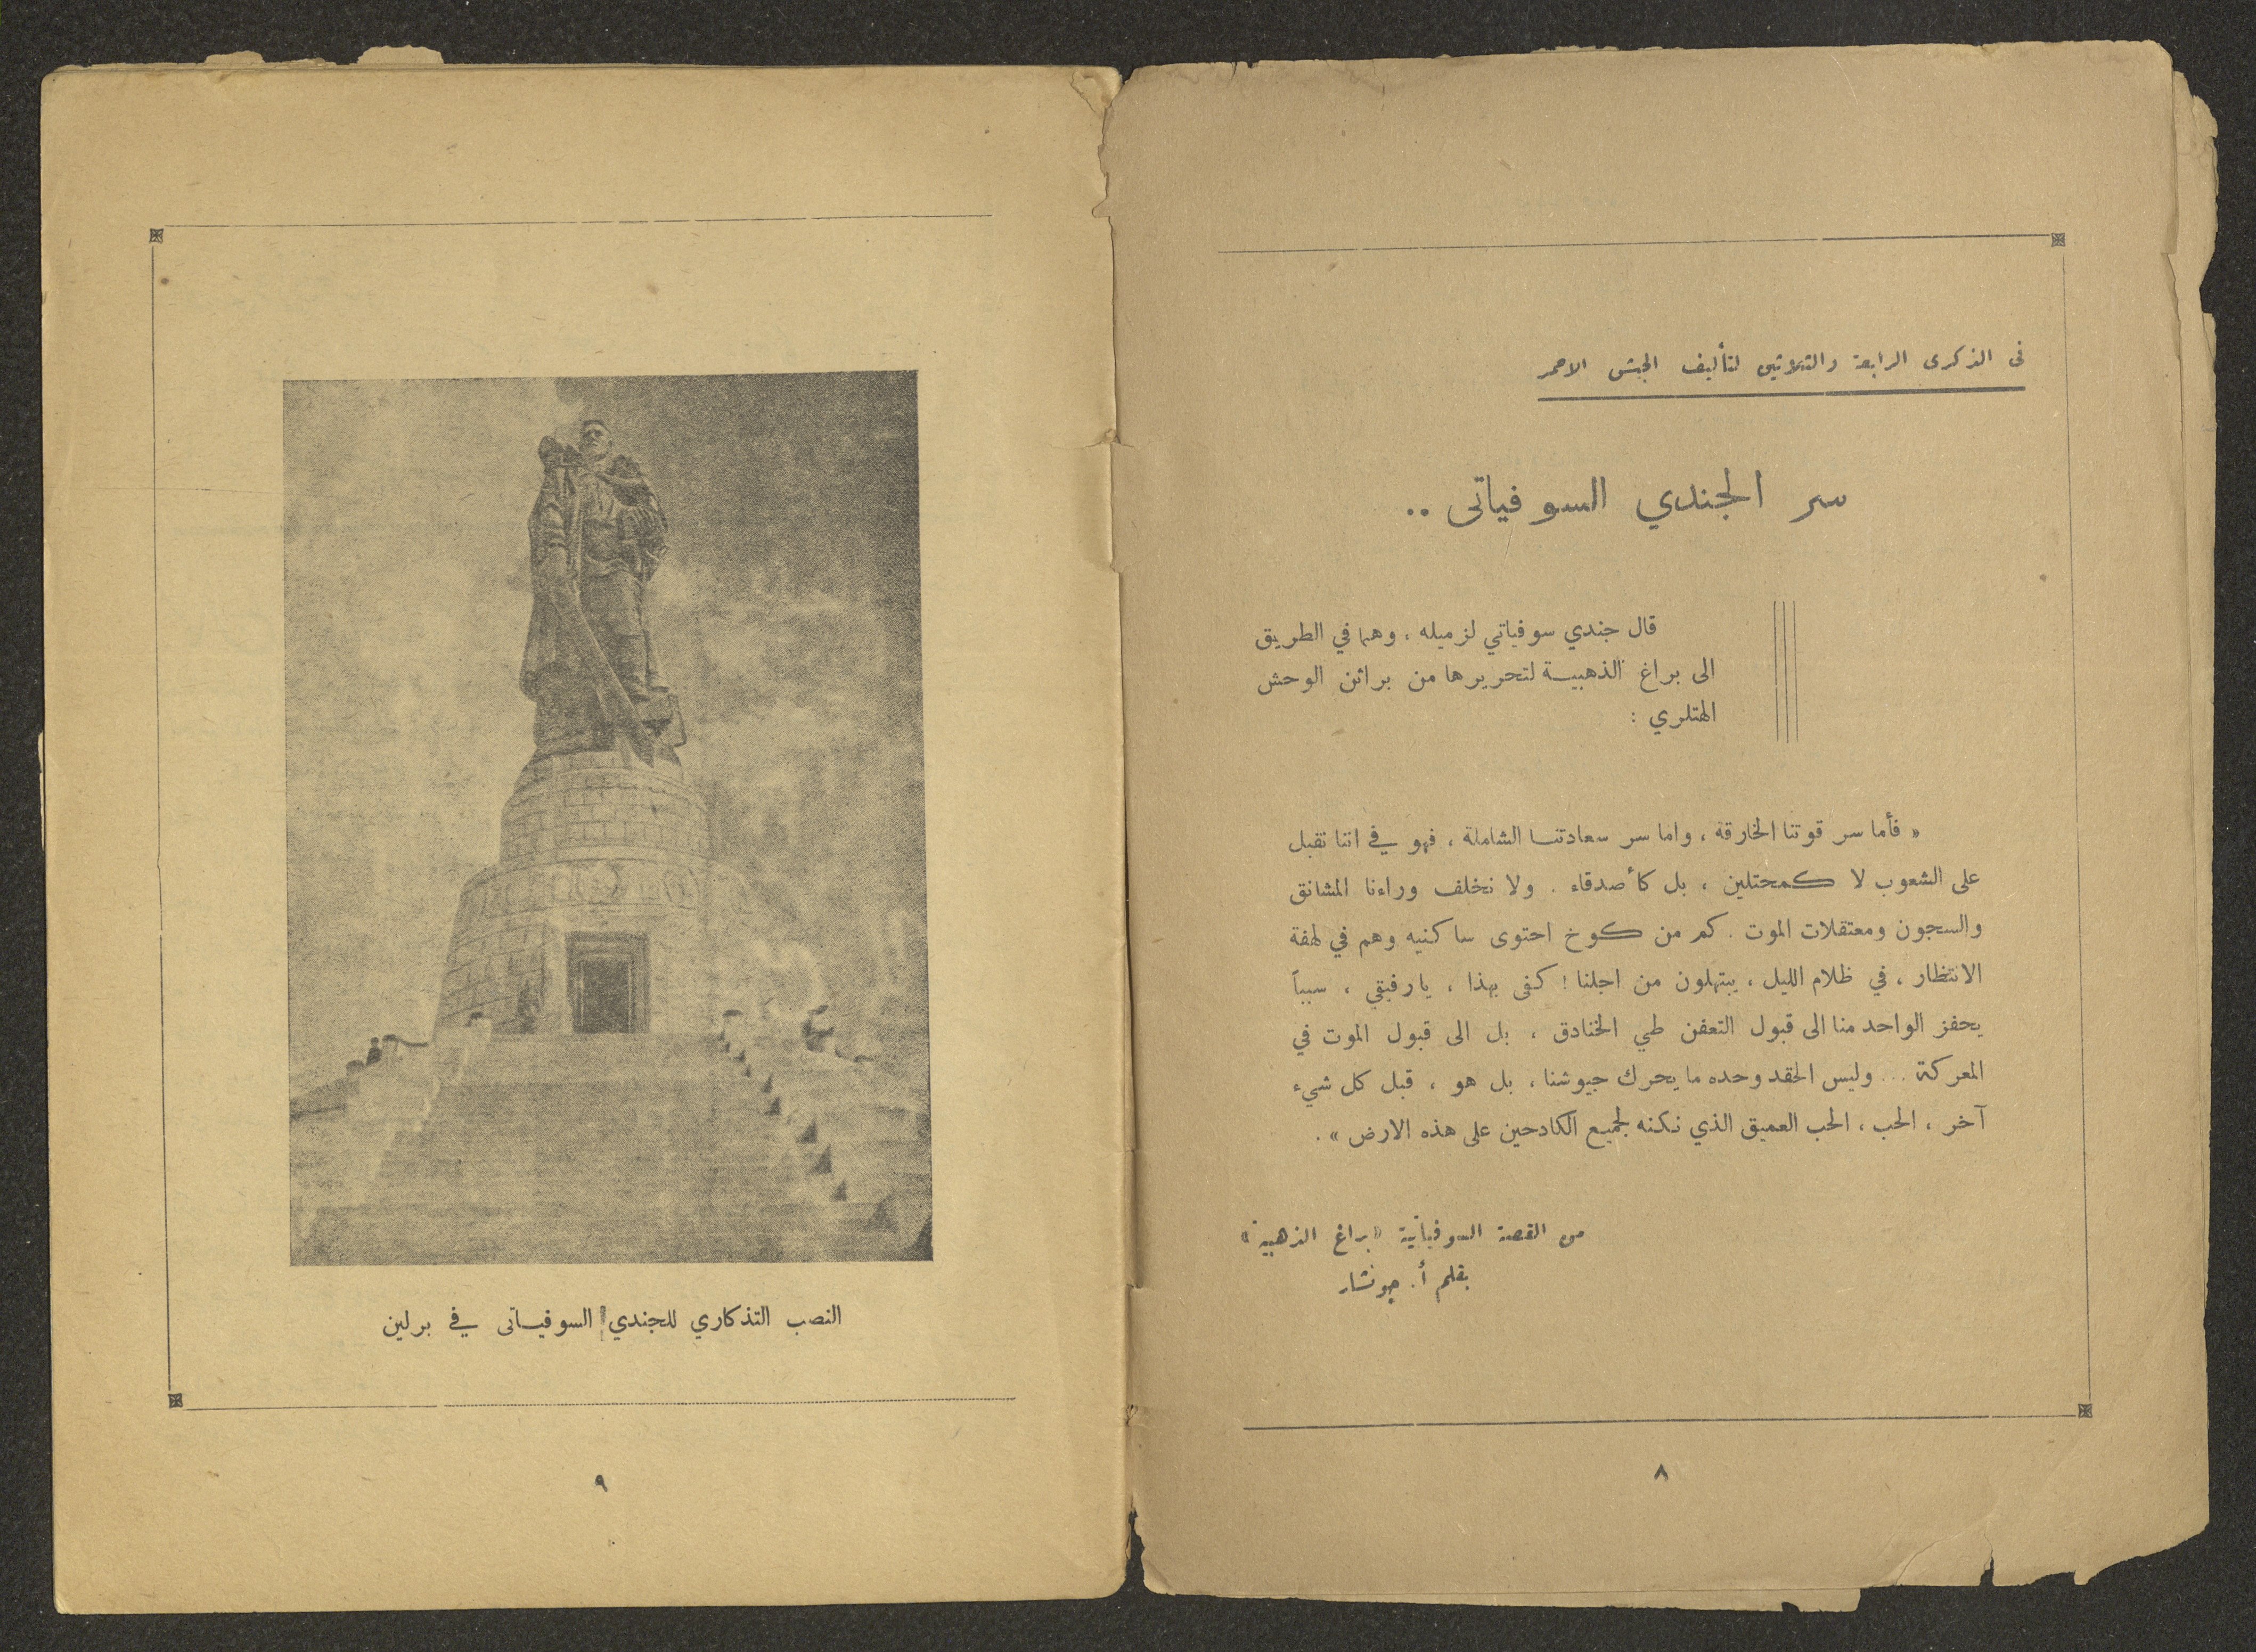 في الذكرى الرابعة والثلاثين لتأليف الجيش الاحمر
سر الجندي السوفياتي ..
قال جندي سوفياتي لزميله ، وهما في الطريق
الى براغ الذهبية لتحريرها من براثن الوحش
الهتلري :
« فأما سر قوتنا الخارقة ، واما سر سعادتنا الشاملة ، فهو في اننا نقبل
على الشعوب لا كمحتلين ، بل كأصدقاء . ولا نخلف وراءنا المشانق
والسجون ومعتقلات الموت . كم من كوخ احتوى ساكنيه وهم في لهفة
الانتظار ، في ظلام الليل ، يبتهلون من اجلنا ! كفى بهذا ، يارفيقي ، سبباً
يحفز الواحد منا الى قبول التعفن طي الخنادق ، بل الى قبول الموت في
المعركة ... وليس الحقد وحده ما يحرك جيوشنا ، بل هو ، قبل كل شيء
آخر ، الحب ، الحب العميق الذي نكنه لجميع الكادحين على هذه الارض » .
من القصة السوفياتية «براغ الذهبية»
بقلم أ. جونشار
٨
النصب التذكاري للجندي السوفياتي في برلين
٩